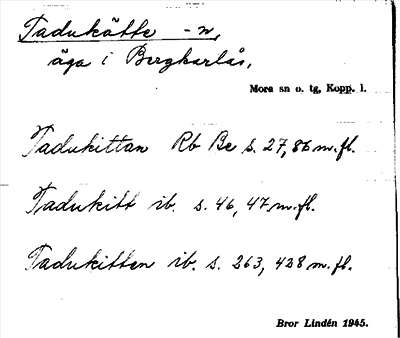 Tadukätte -n,
äga i Bergkarlås,
Mora sn o. tg, Kopp. l.
Tadukittan Rb Be s. 27, 86 m. fl.
Tadukitt ib. s. 46, 47 m. fl.
Tadukitten ib. s. 263, 428 m. fl.
Bror Lindén 1945.